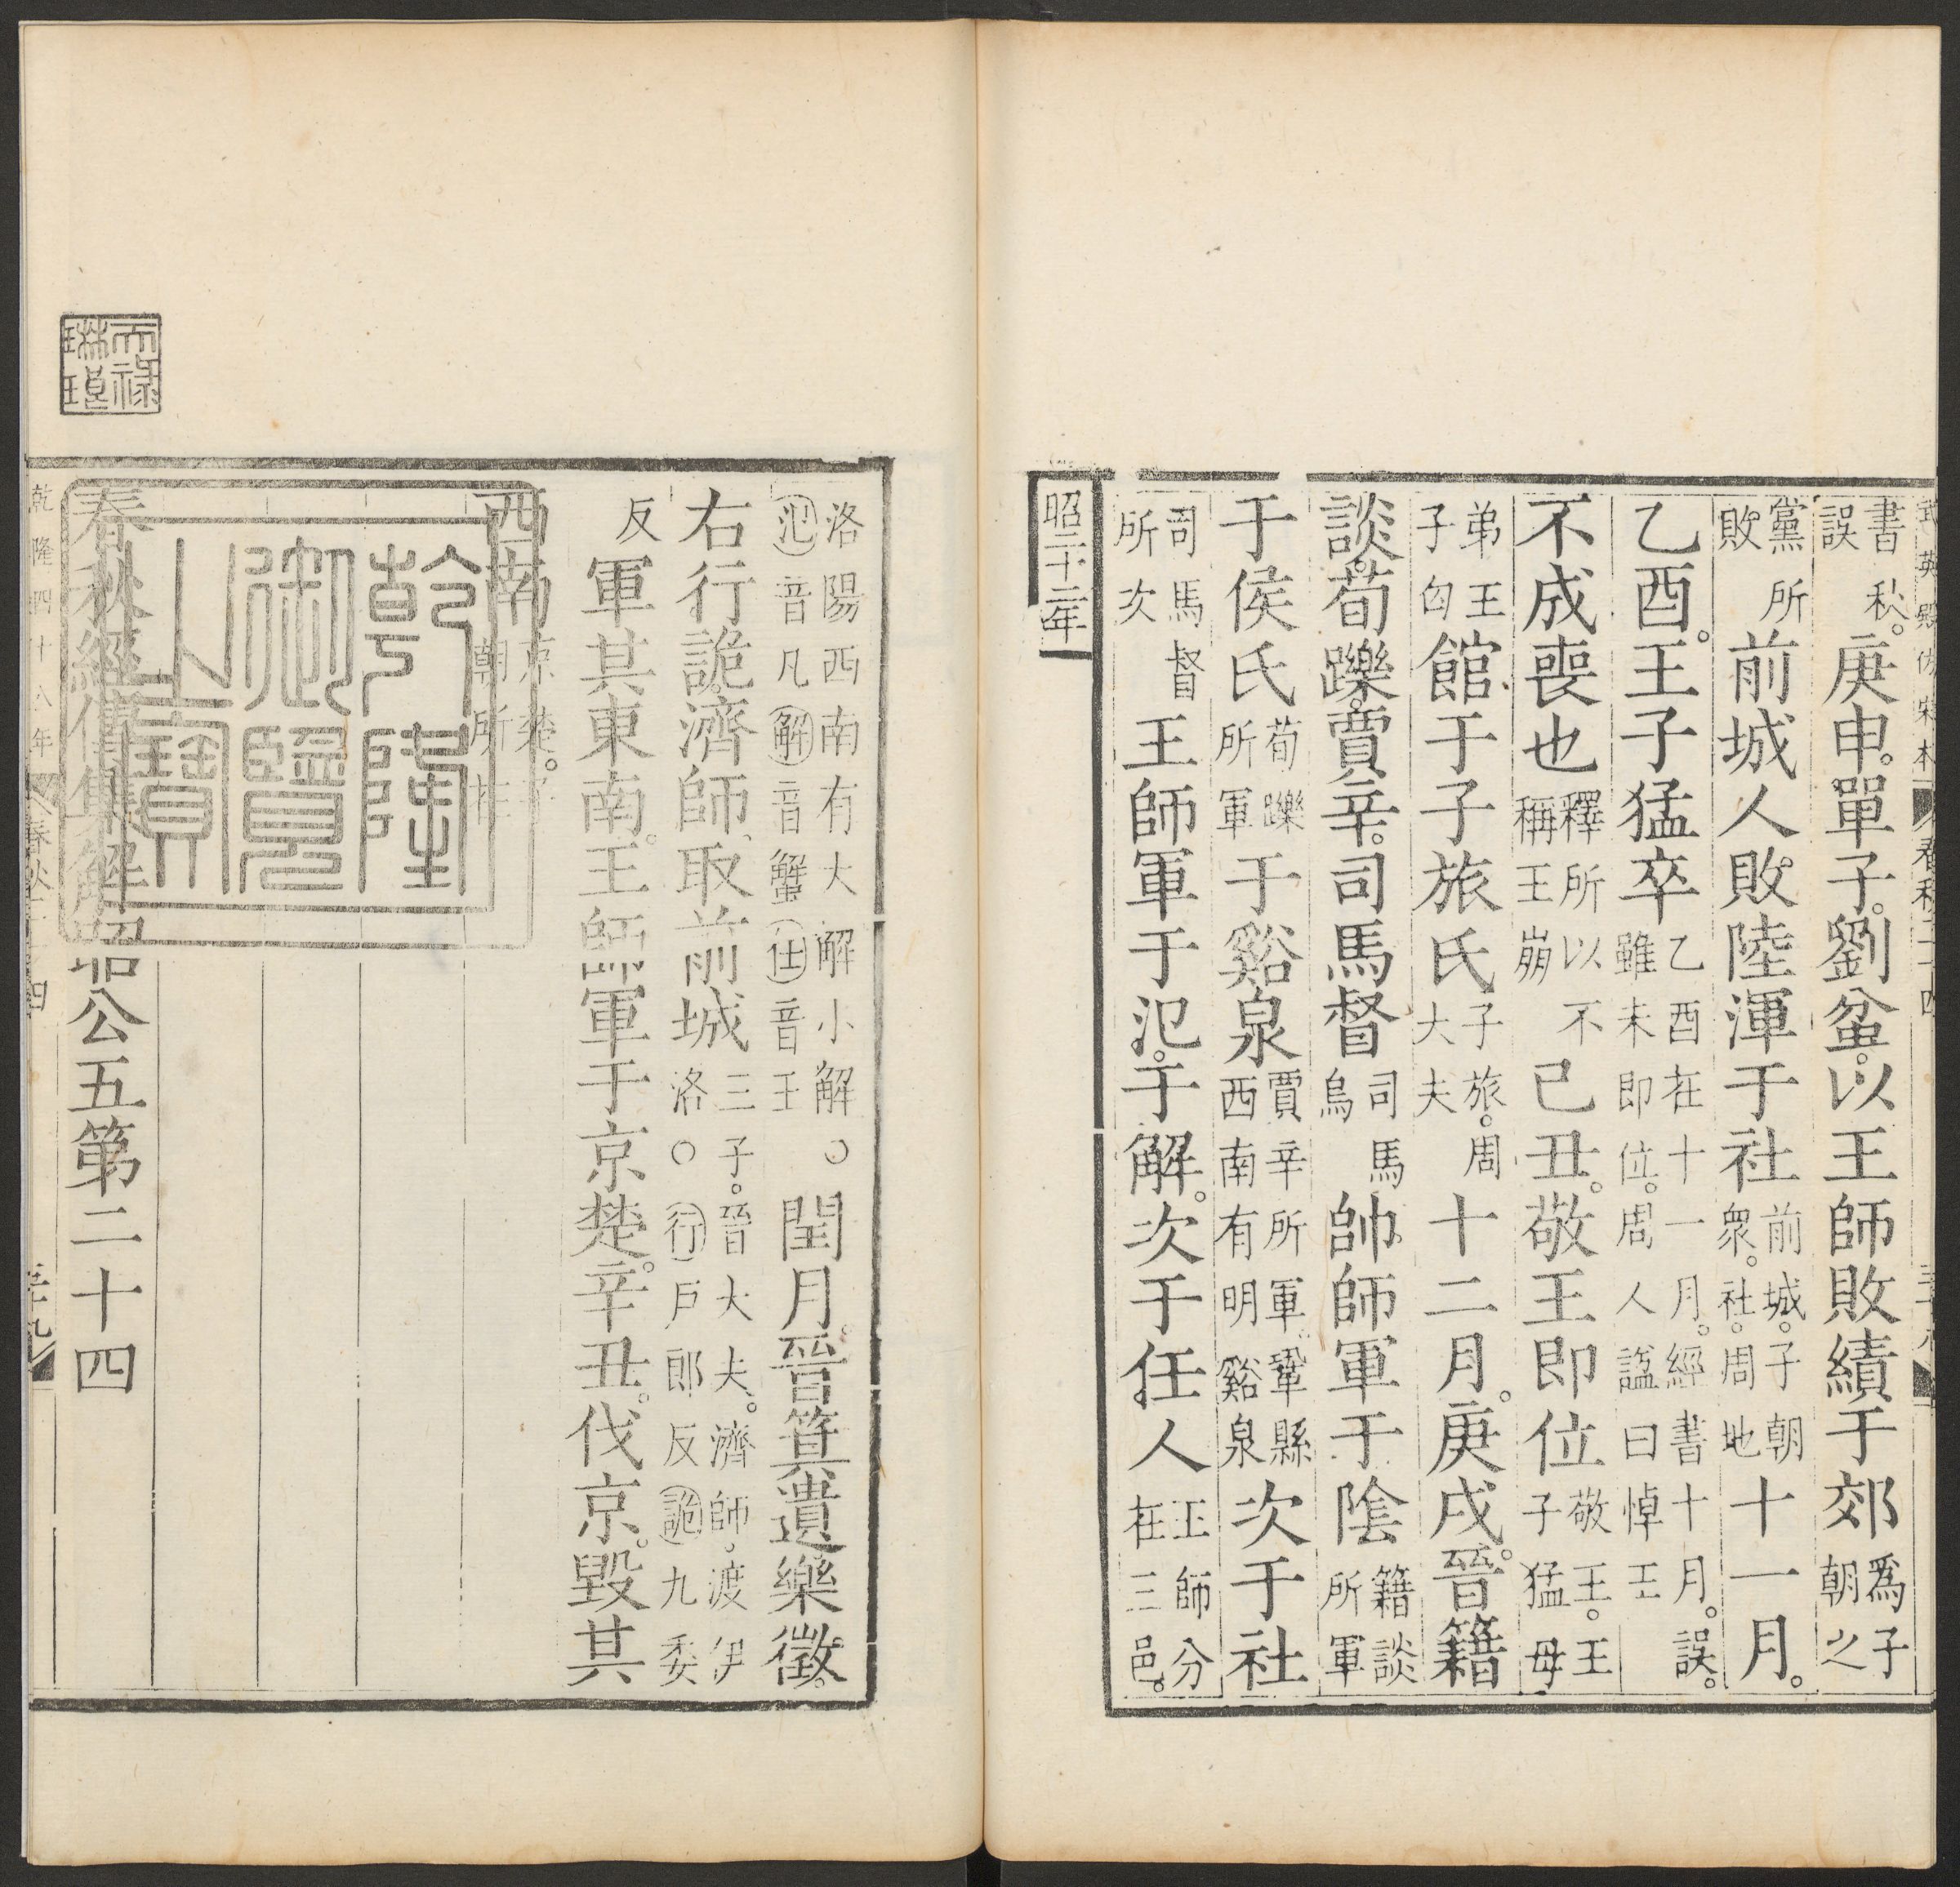 武英殿仿宋本 春秋二十四
書秋。誤庚申。單子。劉蚠。以王師敗績于郊爲子朝之
黨所敗前城人。敗陸渾于社前城。子朝衆。社。周地十一月。
乙酉。王子猛卒乙酉在十一月。經書十月。誤。雖未即位。周人諡曰悼王
不成喪也釋所以不稱王崩己丑。敬王即位敬王。王子猛母
弟王子匄館于子旅氏子旅。周大夫十二月。庚戌。晉籍
談。荀躒。賈辛。司馬督司馬烏帥師軍于陰籍談所軍
于侯氏荀躒所軍于谿泉賈辛所軍。鞏縣西南有明谿泉次于社
司馬督所次王師軍于氾。于解。次于任人王師分在三邑。
昭二十二年
洛陽西南有大解小解〇氾音凡解音蟹任音壬閏月。晉箕遺。樂徵。
右行詭。濟師。取前城三子。晉大夫。濟師。渡伊洛〇行戶郎反詭九委
反軍其東南。王師軍于京楚。辛丑。伐京。毀其
西南京楚。子朝所在
春秋經傳集解昭公五第二十四
乾隆四十八年 春秋二十四
乾隆御覽之寶
天祿琳琅